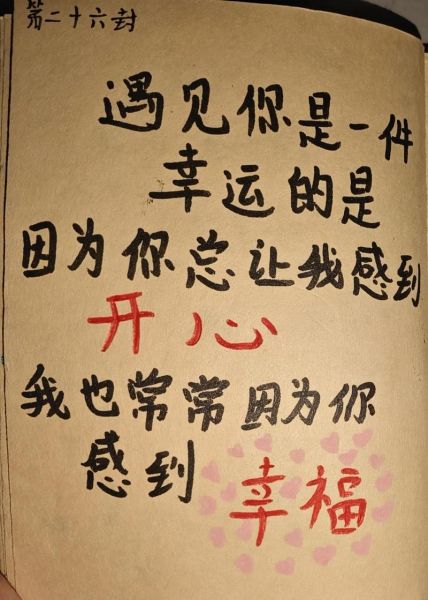 第二十六封
遇见你是一件
幸运的是
因为你总让我感到
开心
我也常常因为你
感到
幸福